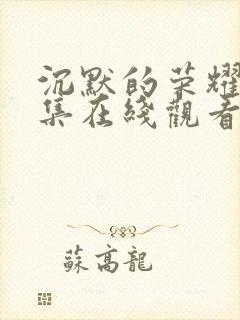 沉默的荣耀
集在綫觀看
蘇高龍